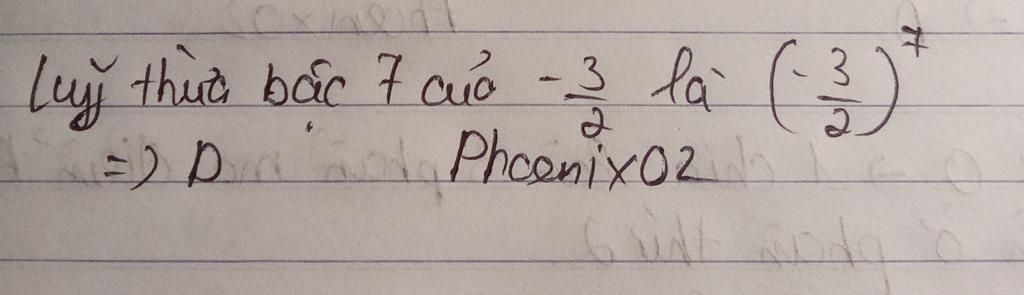 Luỹ thừa bậc 7 của -3/2 là (-3/2)^7
=> D PhoenixO2